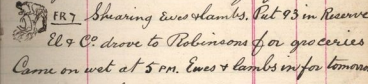 FR 7 Shearing Ewes & lambs. Put 93 in Reserve
El & Co. drove to Robinsons for groceries
Came on wet at 5 PM. Ewes & lambs in for tomorrow